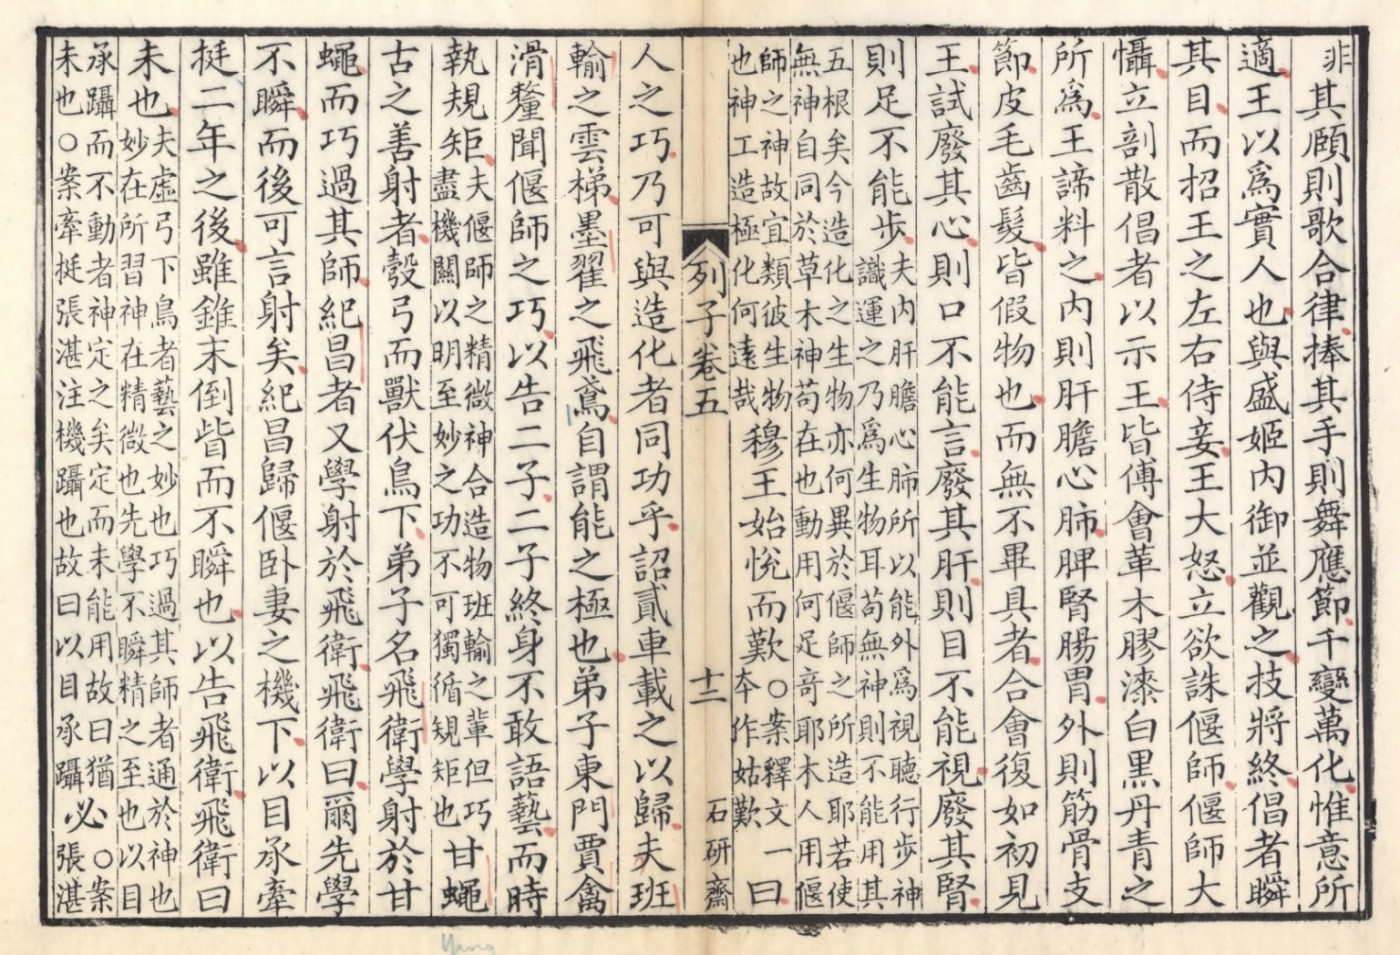 非其頤則歌合律捧其手則舞應節千變萬化惟意所
適王以爲實人也與盛姬內御並觀之技將終倡者瞬
其目而招王之左右侍妾王大怒立欲誅偃師偃師大
懾立剖散倡者以示王皆傅會革木膠漆白黑丹青之
所爲王諦料之內則肝膽心肺脾腎腸胃外則筋骨支
節皮毛齒髮皆假物也而無不畢具者合會復如初見
王試廢其心則口不能言廢其肝則目不能視廢其腎
則足不能步夫內肝膽心肺所以能外爲視聽行步神
識運之乃爲生物耳苟無神則不能用其
五根矣今造化之生物亦何異於偃師之所造耶若使
無神自同於草木神苟在也動用何足奇耶木人用偃
師之神故宜類彼生物
也神工造極化何遠哉穆王始悅而歎○案釋文一曰
本作姑歎
列子卷五
十二
石研齋
人之巧乃可與造化者同功乎詔貳車載之以歸夫班
輸之雲梯墨翟之飛鳶自謂能之極也弟子東門賈禽
滑釐聞偃師之巧以告二子二子終身不敢語藝而時
執規矩夫偃師之精微神合造物班輸之輩但巧
盡機關以明至妙之功不可獨循規矩也甘蠅
古之善射者彀弓而獸伏鳥下弟子名飛衛學射於甘
蠅而巧過其師紀昌者又學射於飛衛飛衛曰爾先學
不瞬而後可言射矣紀昌歸偃卧妻之機下以目承牽
挺二年之後雖錐末倒眥而不瞬也以告飛衛飛衛曰
未也夫虛弓下鳥者藝之妙也巧過其師者通於神也
妙在所習神在精微也先學不瞬精之至也以目
承躡而不動者神定之矣定而未能用故曰猶必○案張湛
未也○案牽挺張湛注機躡也故曰以目承躡